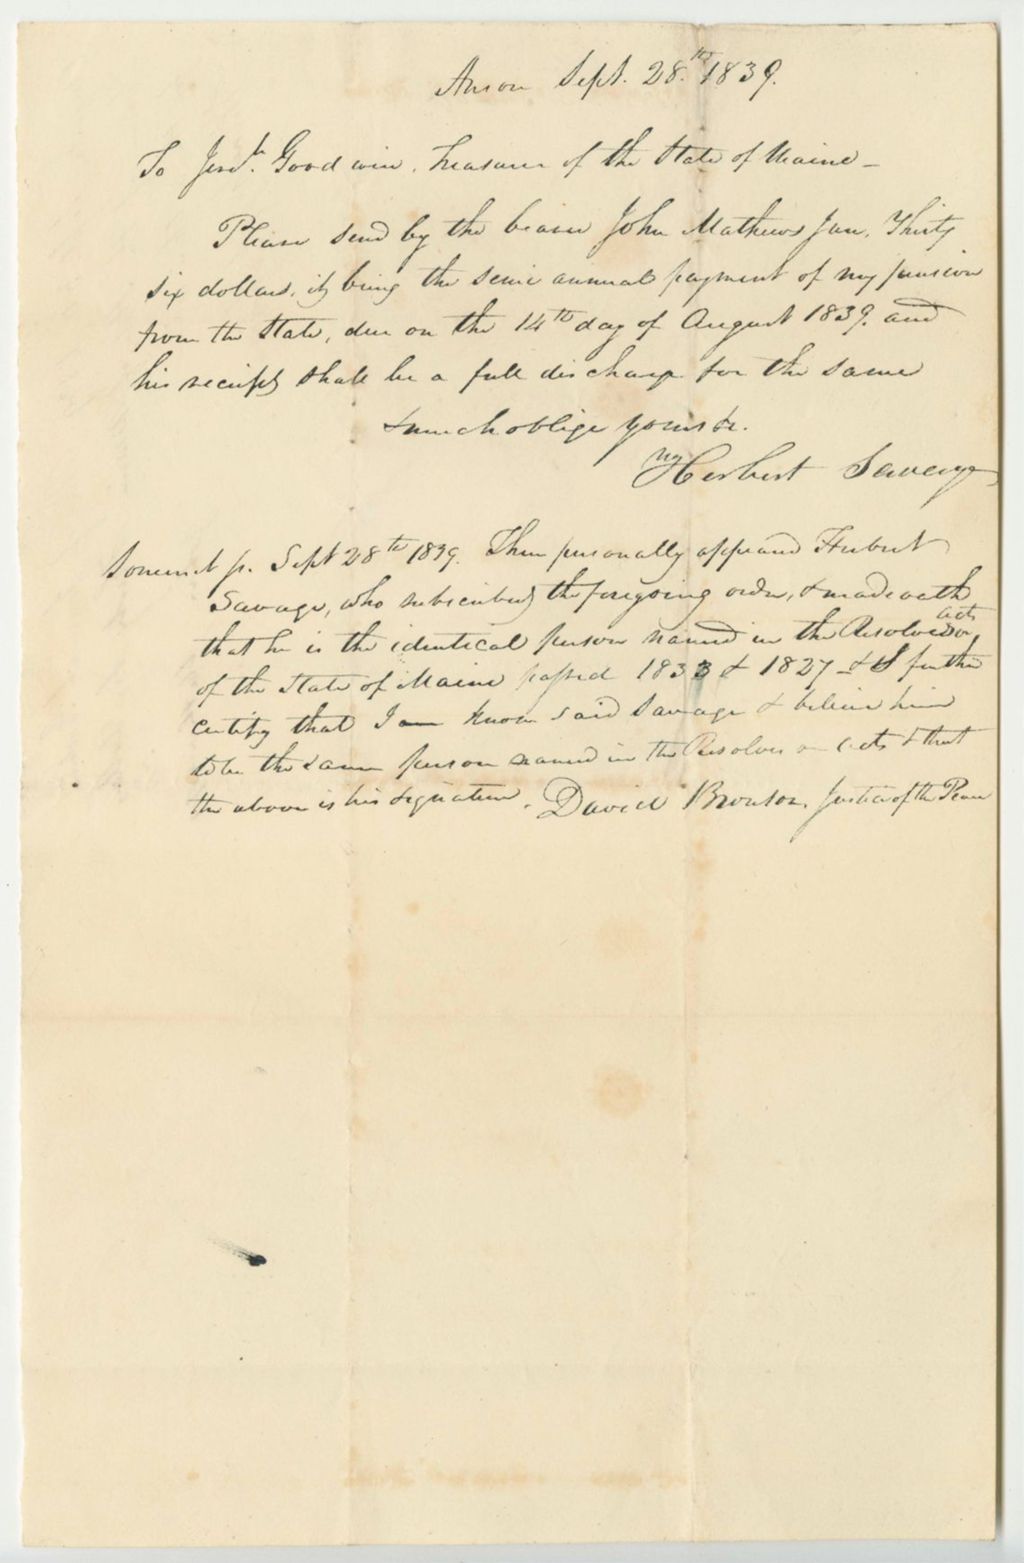 Anson Sept. 28.th 1839.
To Jerh. Goodwin, Treasurer of the State of Maine –
Please send by the bearer John Mathews Jun. Thirty
six dollars, it being the semi annual payment of my pension
from the State, due on the 14th day of August 1839. and
his receipt shall be a full discharge for the same
& much oblige yours &c.
Herbert Savage
Somerset ss. Sept 28th 1839. Then personally appeared Hubert
Savage, who subscribed the foregoing order, & made oath
that he is the identical person named in the Resolves or acts
of the State of Maine passed 1833 & 1827 – & I further
certify that I know said Savage & believe him
to be the same person named in the Resolves or Acts & that
the above is his signature. David Bronson, Justice of the Peace